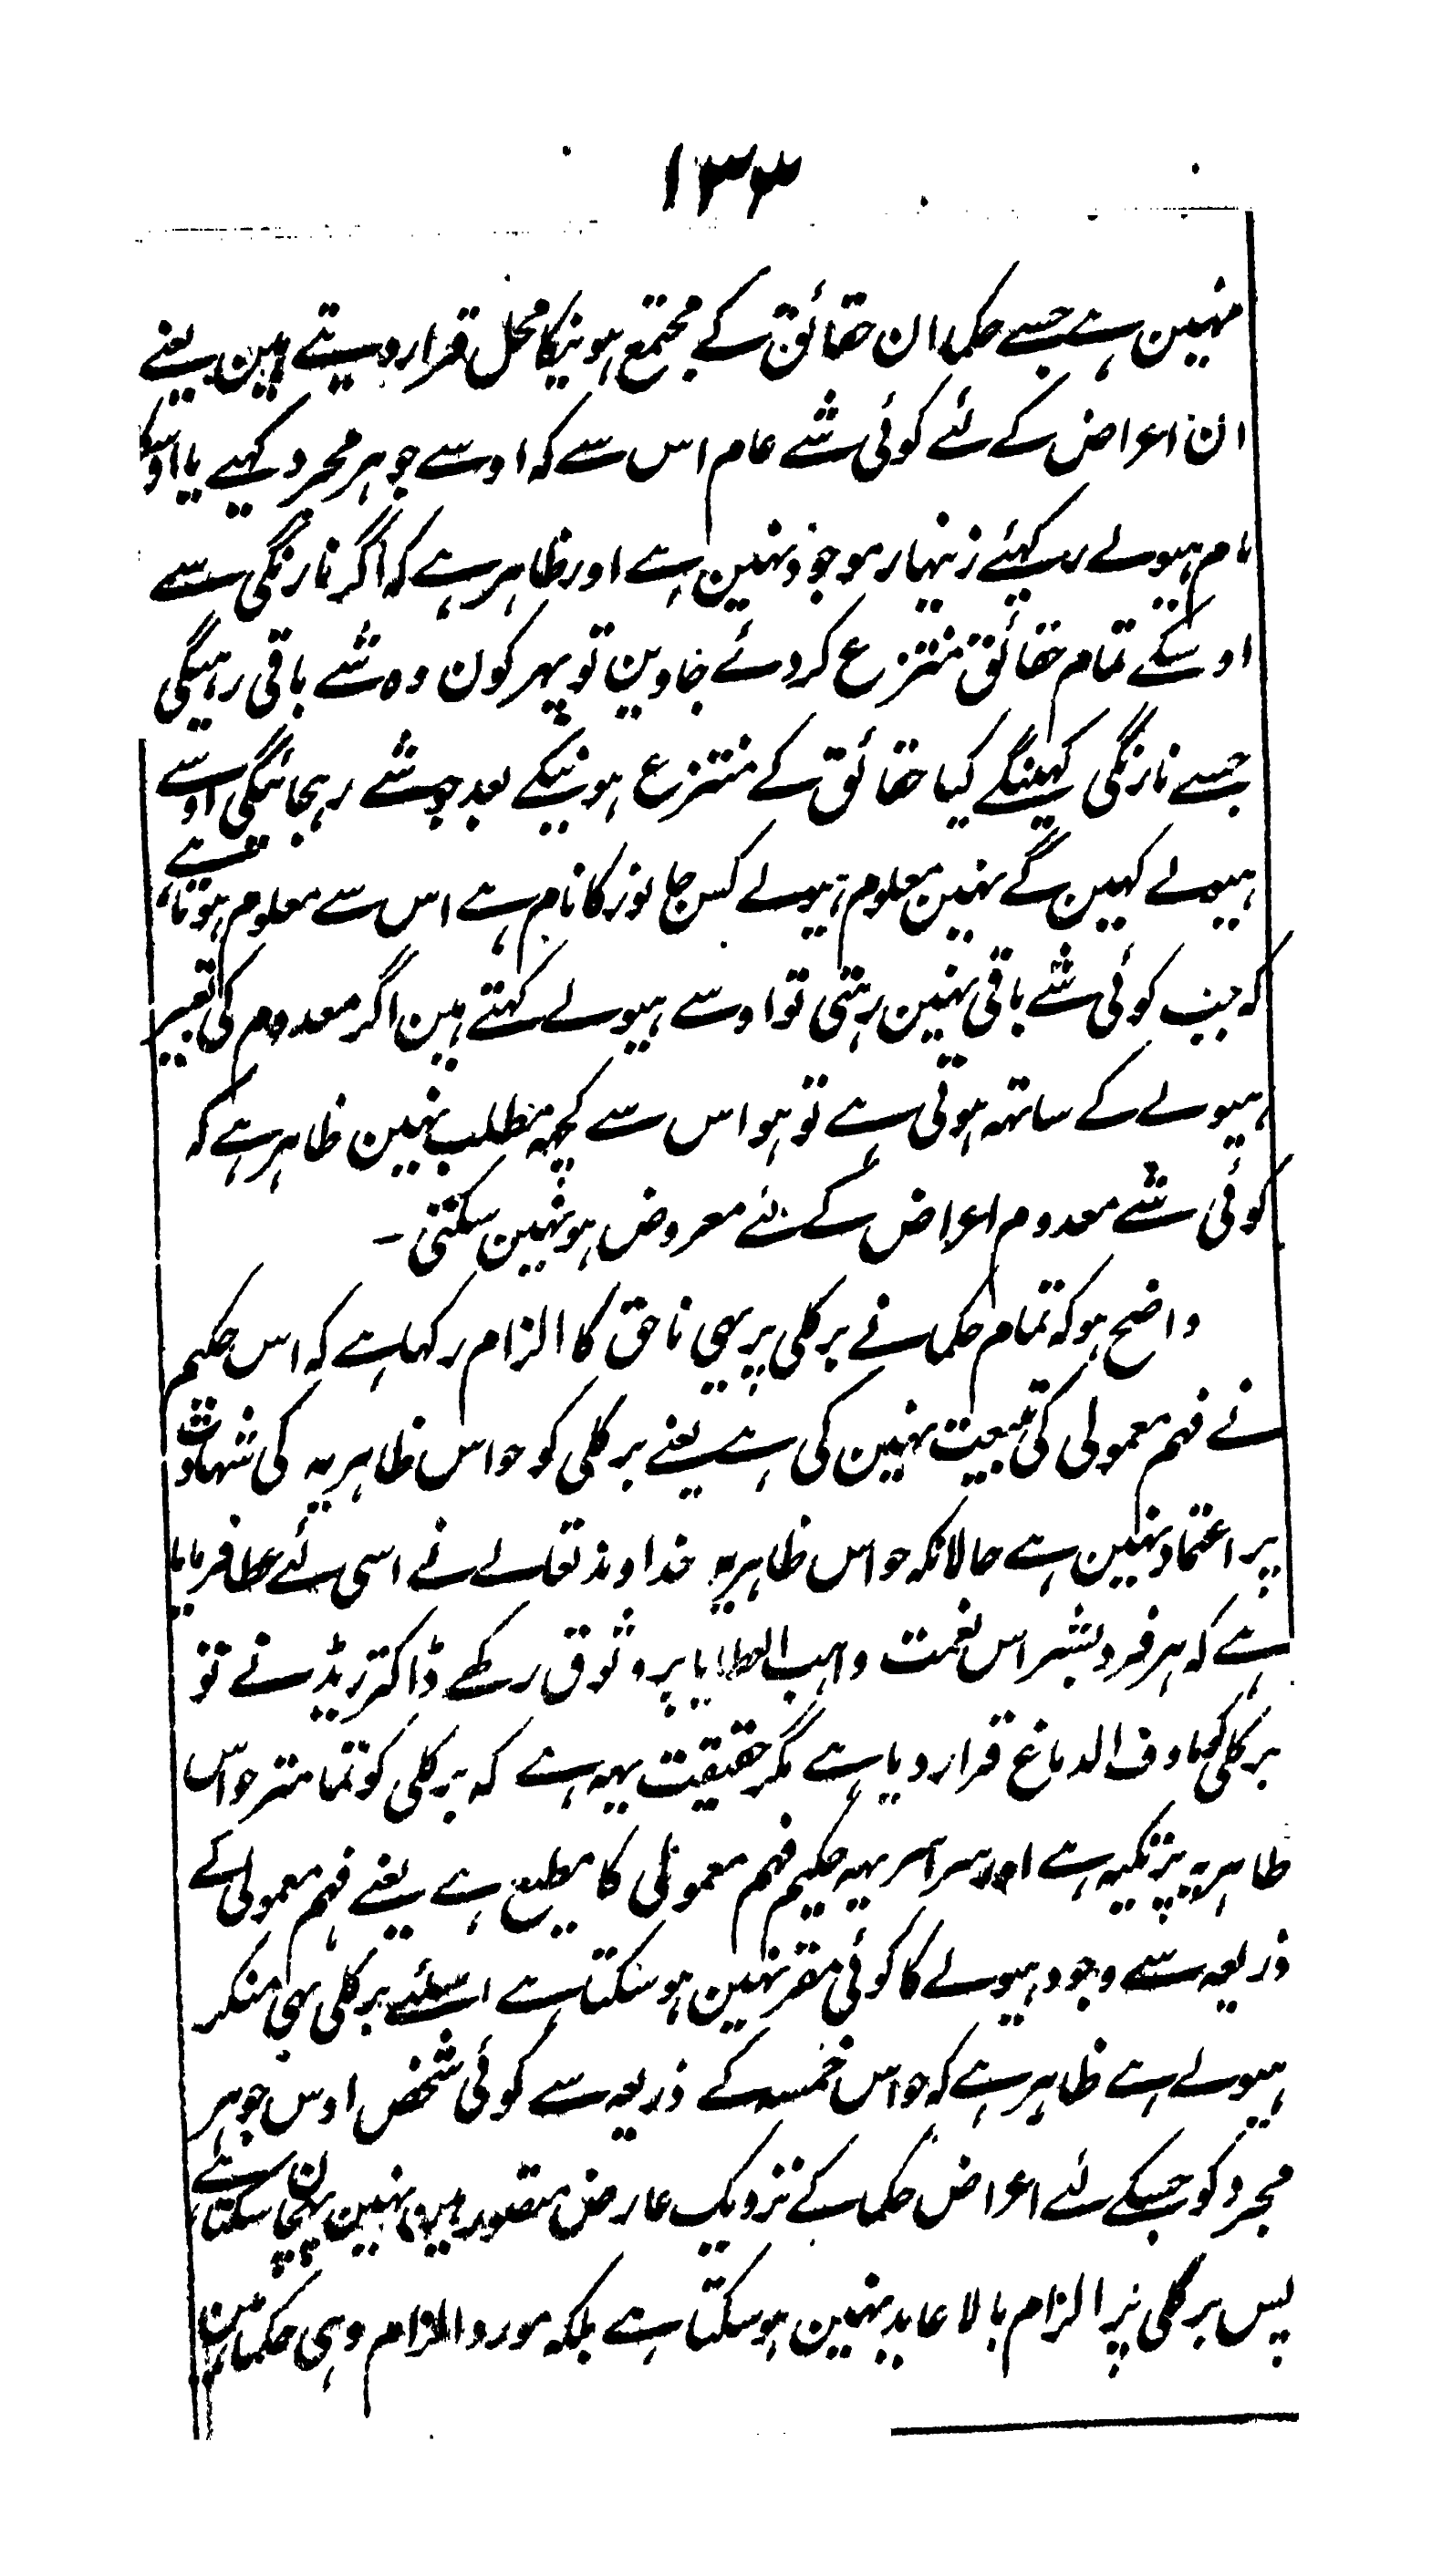 ۱۳۴
نہین ہے جسے حکما ان حقائق کے مجتمع ہونیکا محل قرار دیتے ہین یعنے
ان اعراض کے لئے کوئی شے عام اس سے کہ اوسے جوہر مجرد کہیے یا اوسکا
نام ہیولے رکہئے زنہار موجود نہین ہے اور ظاہر ہے کہ اگر نارنگی سے
اوسکے تمام حقائق منتزع کردئے جاوین تو پہر کون وہ شے باقی رہیگی
جسے نارنگی کہینگے کیا حقائق کے منتزع ہونیکے بعد جو شے رہجائیگی اوسے
ہیولے کہین گے نہین معلوم ہیولے کس جانور کا نام ہے اس سے معلوم ہوتا ہے
کہ جب کوئی شے باقی نہین رہتی تو اوسے ہیولے کہتے ہین اگر معدوم کی تعبیر
ہیولے کے ساتہہ ہوتی ہے تو ہو اس سے کچہہ مطلب نہین ظاہر ہے کہ
کوئی شے معدوم اعراض کے لئے معروض ہو نہین سکتی ۔
واضح ہو کہ تمام حکما نے برکلی پر یہی ناحق کا الزام رکہا ہے کہ اس حکیم
نے فہم معمولی کی تبعیت نہین کی ہے یعنے برکلی کو حواس ظاہریہ کی شہادت
پر اعتماد نہین ہے حالانکہ حواس ظاہریہ خداوند تعالے نے اسی لئے عطا فرمایا
ہے کہ ہر فرد بشر اس نعمت واہب العطایا پر وثوق رکہے ڈاکتر ریڈ نے تو
برکلی کو ماوف الدماغ قرار دیا ہے مگر حقیقت یہہ ہے کہ برکلی کو تمامتر حواس
ظاہریہ پر تکیہ ہے اور سراسر یہہ حکیم فہم معمولی کا مطیع ہے یعنے فہم معمولی کے
ذریعہ سے وجود ہیولے کا کوئی مقر نہین ہو سکتا ہے اسلئے برکلی بہی منکر
ہیولے ہے ظاہر ہے کہ حواس خمسہ کے ذریعہ سے کوئی شخص اوس جوہر
مجرد کو جسکے لئے اعراض حکما کے نزدیک عارض متصور ہین نہین پہچان سکتا ہے
پس برکلی پر الزام بالا عاید نہین ہو سکتا ہے بلکہ مورد الزام وہی حکما ہین